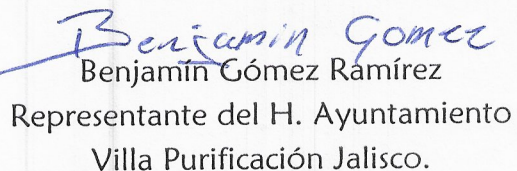 Benjamin Gomez
Benjamín Gómez Ramírez
Representante del H. Ayuntamiento
Villa Purificación Jalisco.